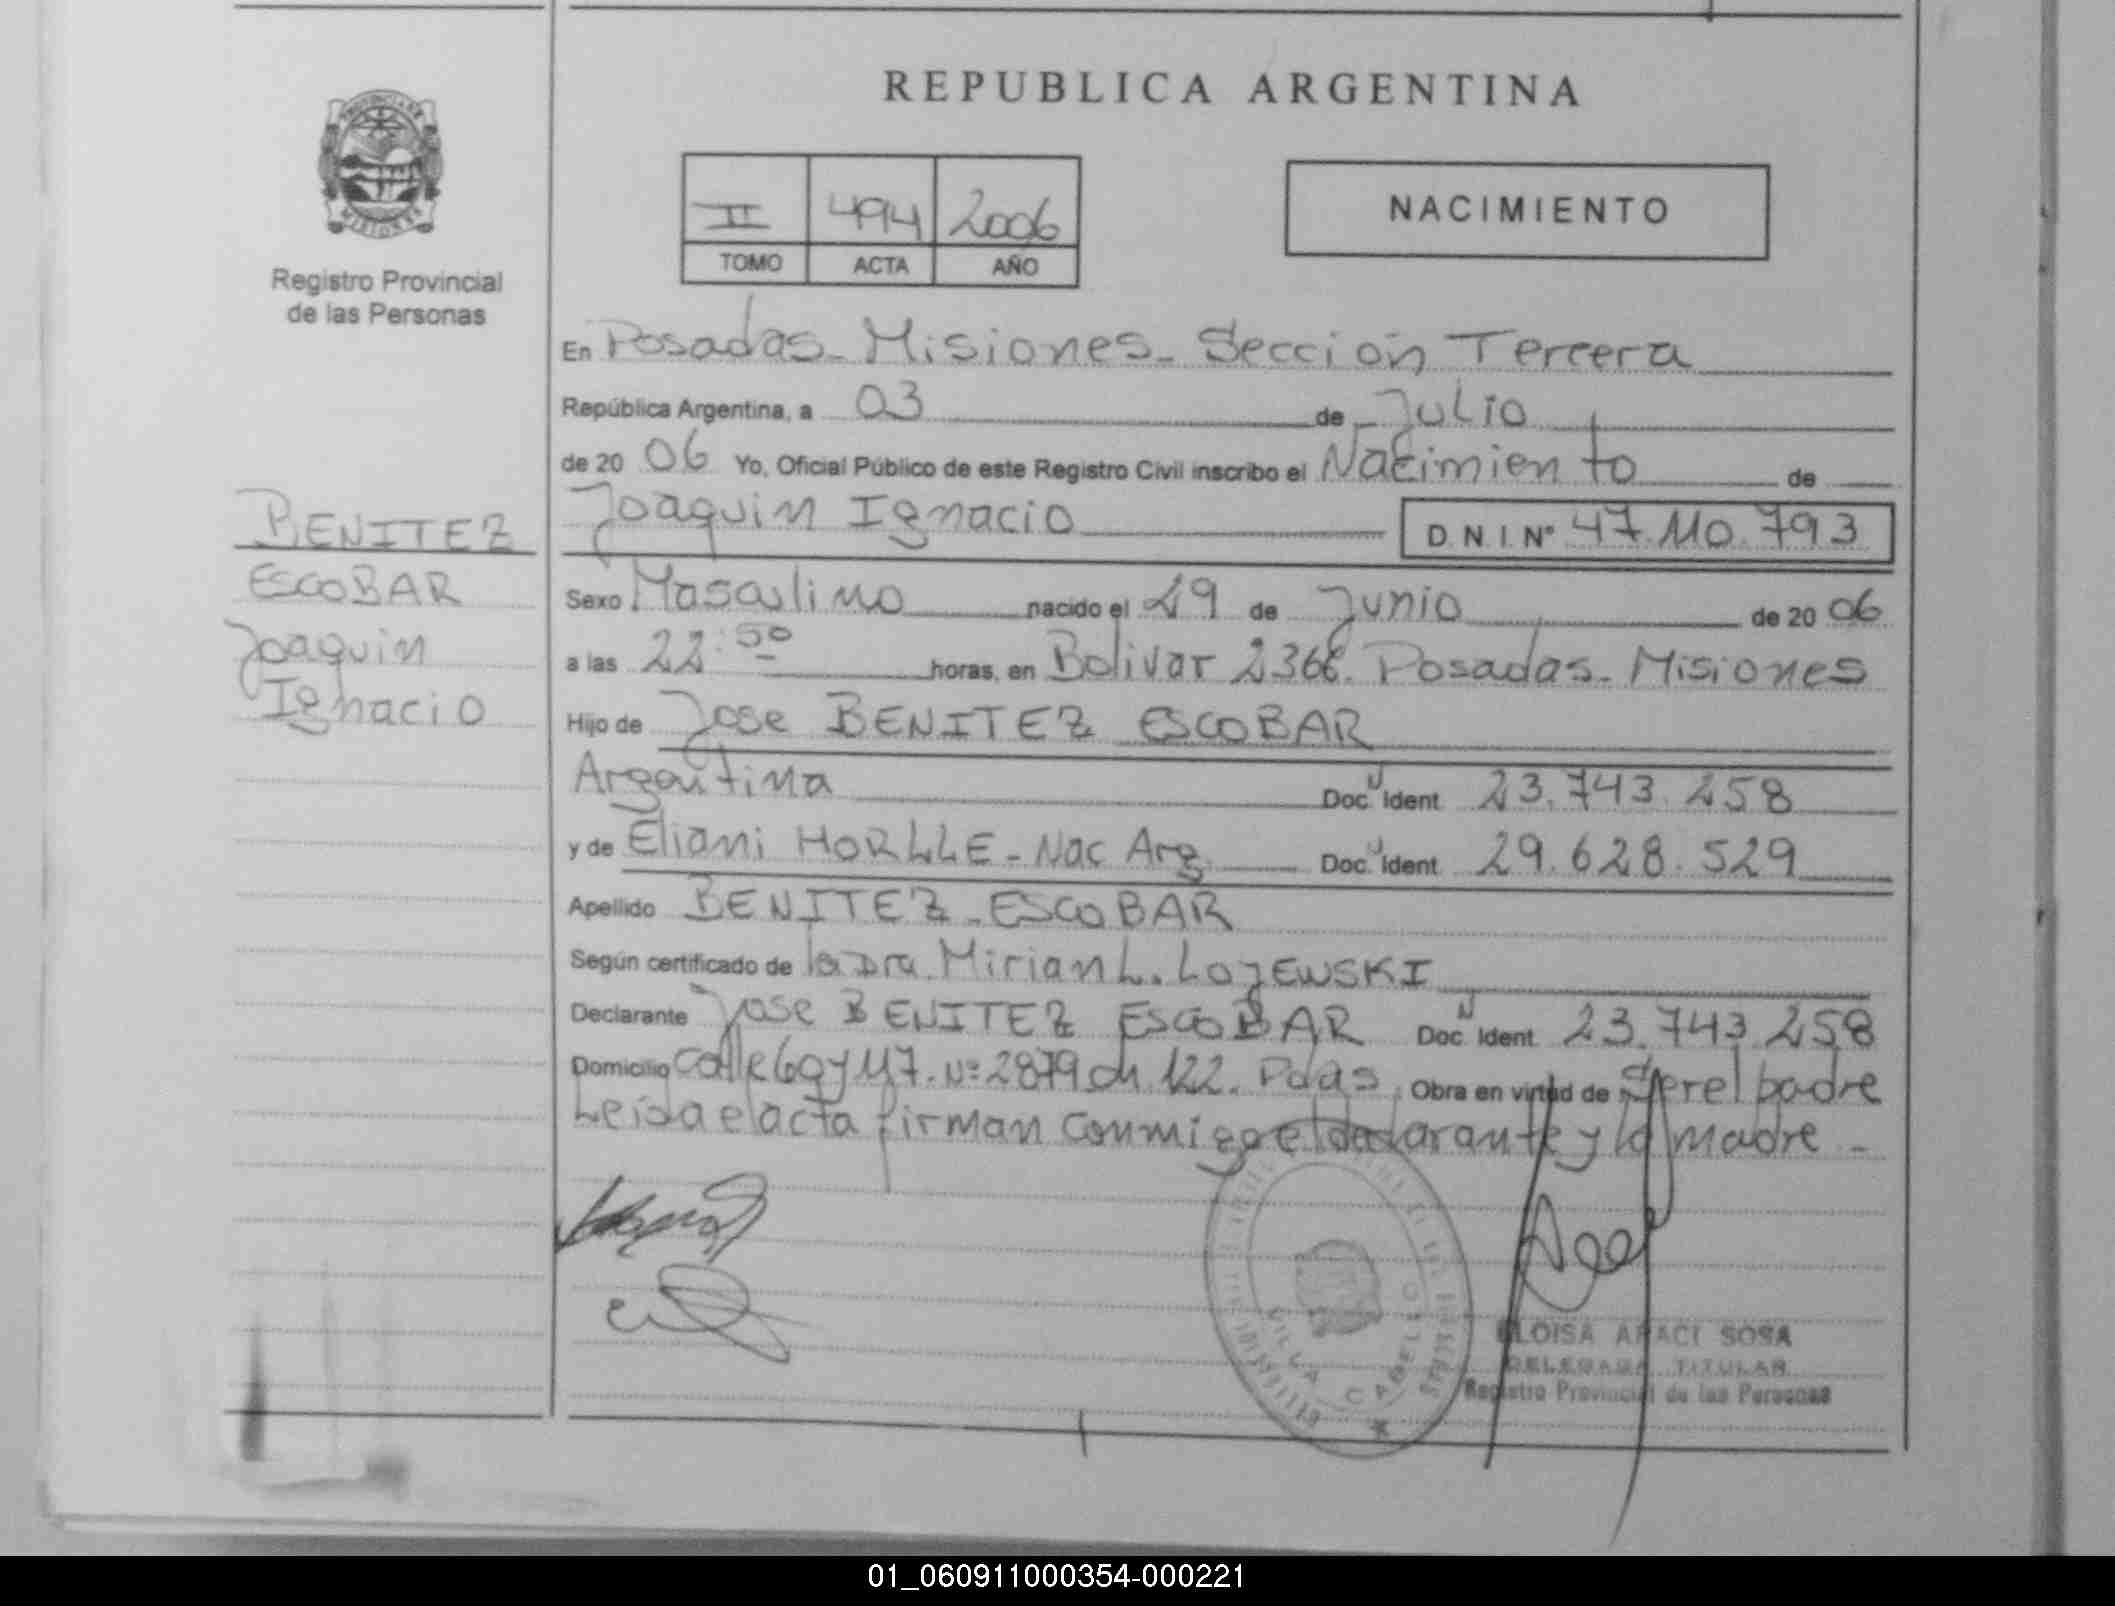 REPUBLICA ARGENTINA
PROVINCIA DE
MISIONES
Registro Provincial
de las Personas
II 494 2006
TOMO ACTA AÑO
NACIMIENTO
En Posadas - Misiones - Sección Tercera
República Argentina, a 03 de Julio
de 20 06 Yo, Oficial Público de este Registro Civil inscribo el Nacimiento de
Joaquin Ignacio D.N.I. Nº 47.110.793
BENITEZ
ESCOBAR
Joaquin
Ignacio
Sexo Masculino nacido el 29 de Junio de 20 06
a las 22:50 horas, en Bolivar 2366. Posadas - Misiones
Hijo de Jose BENITEZ ESCOBAR
Argentina Doc. Ident. 23.743.258
y de Eliani HORLLE - Nac Arg. Doc. Ident. 29.628.529
Apellido BENITEZ - ESCOBAR
Según certificado de la Dra. Mirian L. LOJEWSKI
Declarante Jose BENITEZ ESCOBAR Doc. Ident. 23.743.258
Domicilio Calle 69 y 117. Nº 2879 ch 122. Pdas. Obra en virtud de Ser el padre
Leida el acta firman conmigo el declarante y la madre -
VILLA CABELLO
ELOISA ARACI SOSA
DELEGADA TITULAR
Registro Provincial de las Personas
01_060911000354-000221